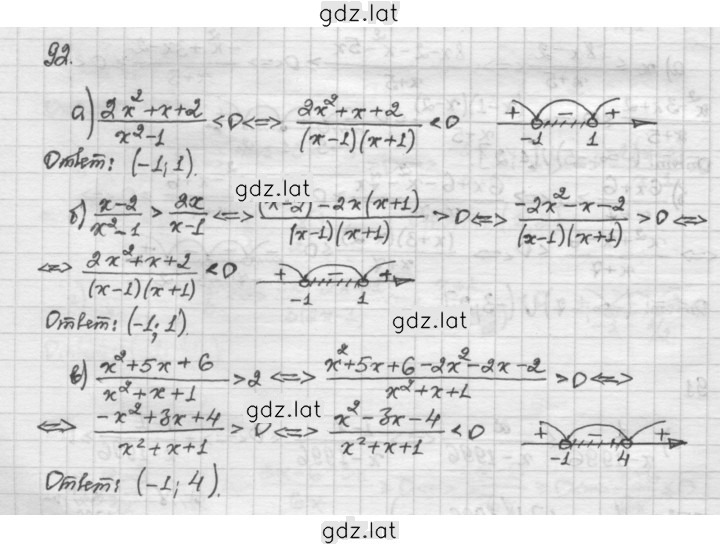 gdz.lat
92.
а) (2x²+x+2)/(x²-1) < 0 <=> (2x²+x+2)/((x-1)(x+1)) < 0 + - + -1 1
Ответ: (-1; 1).
gdz.lat
б) (x-2)/(x²-1) > 2x/(x-1) <=> ((x-2)-2x(x+1))/((x-1)(x+1)) > 0 <=> (-2x²-x-2)/((x-1)(x+1)) > 0 <=>
<=> (2x²+x+2)/((x-1)(x+1)) < 0 + - + -1 1
Ответ: (-1; 1).
gdz.lat
в) (x²+5x+6)/(x²+x+1) > 2 <=> (x²+5x+6-2x²-2x-2)/(x²+x+1) > 0 <=>
gdz.lat
<=> (-x²+3x+4)/(x²+x+1) > 0 <=> (x²-3x-4)/(x²+x+1) < 0 + - + -1 4
Ответ: (-1; 4).
gdz.lat